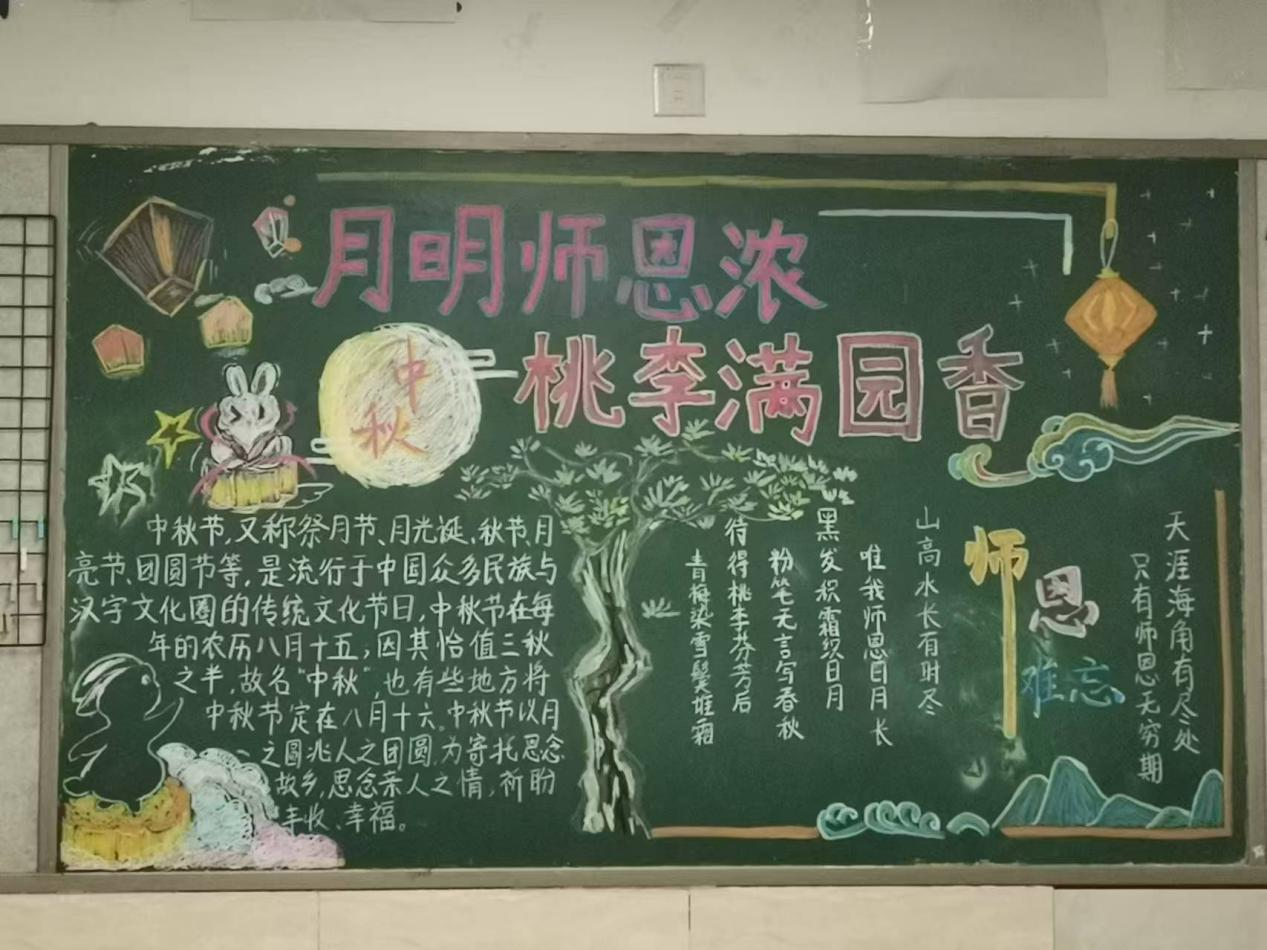 月明师恩浓
桃李满园香
中秋
中秋节,又称祭月节、月光诞、秋节、月
亮节、团圆节等,是流行于中国众多民族与
汉字文化圈的传统文化节日,中秋节在每
年的农历八月十五;因其恰值三秋
之半,故名"中秋",也有些地方将
中秋节定在八月十六。中秋节以月
之圆兆人之团圆,为寄托思念
故乡,思念亲人之情,祈盼
丰收、幸福。
天涯海角有尽处
只有师恩无穷期
师恩难忘
山高水长有时尽
唯我师恩日月长
黑发积霜织日月
粉笔无言写春秋
待得桃李芬芳后
青梅染雪鬓堆霜